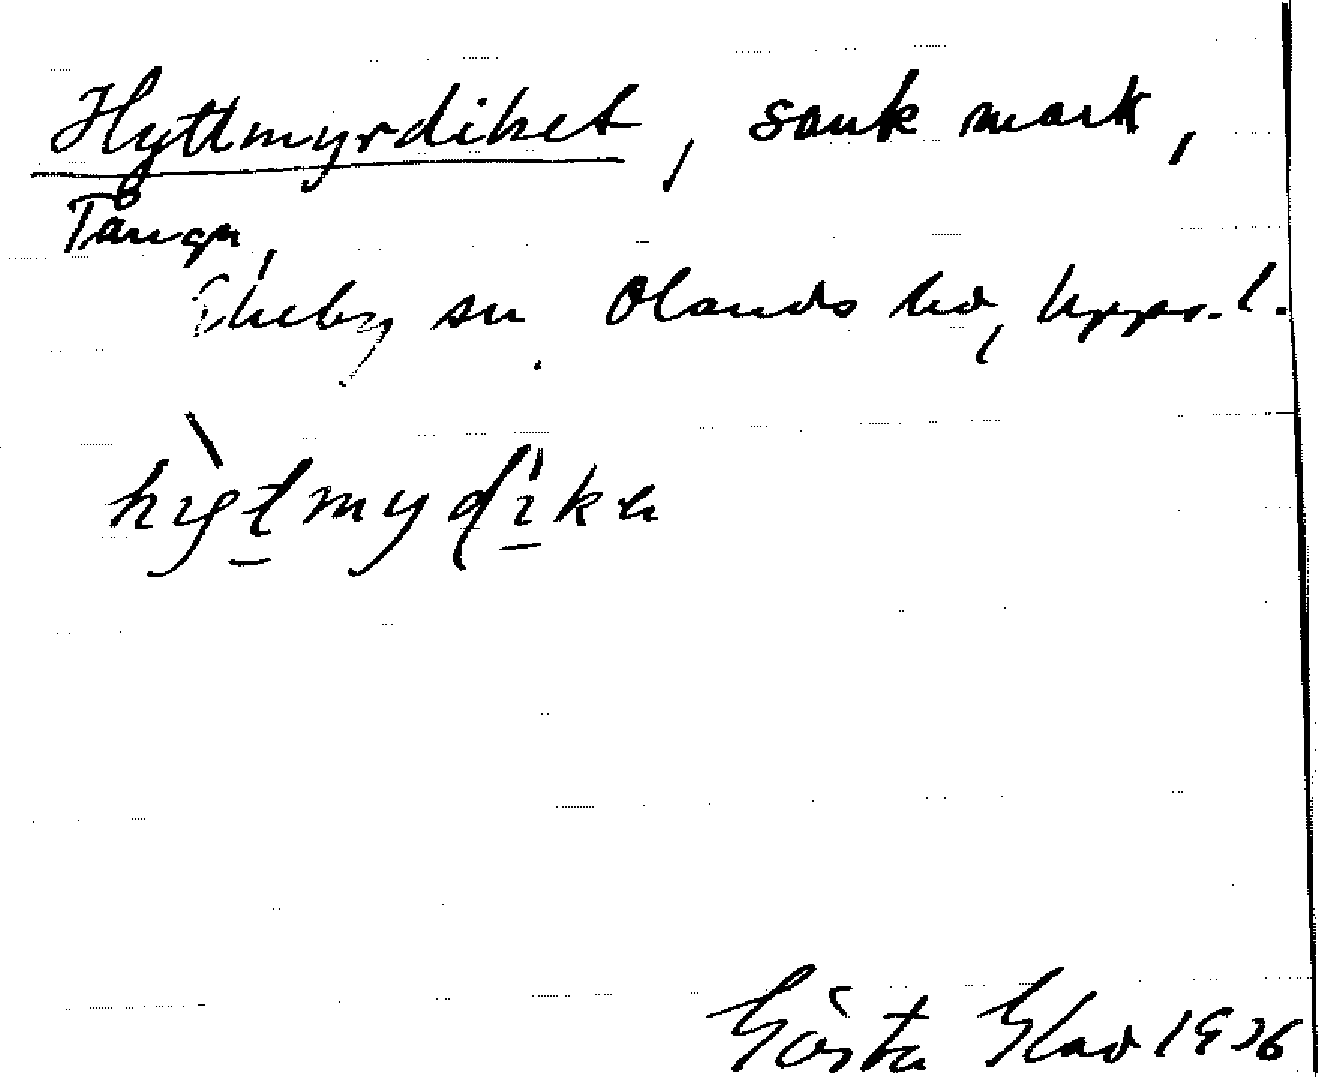 Hyttmyrdiket, sank mark,
Tånga,
Ekeby sn. Olands hd, Upps. l.
Gösta Glad 1936